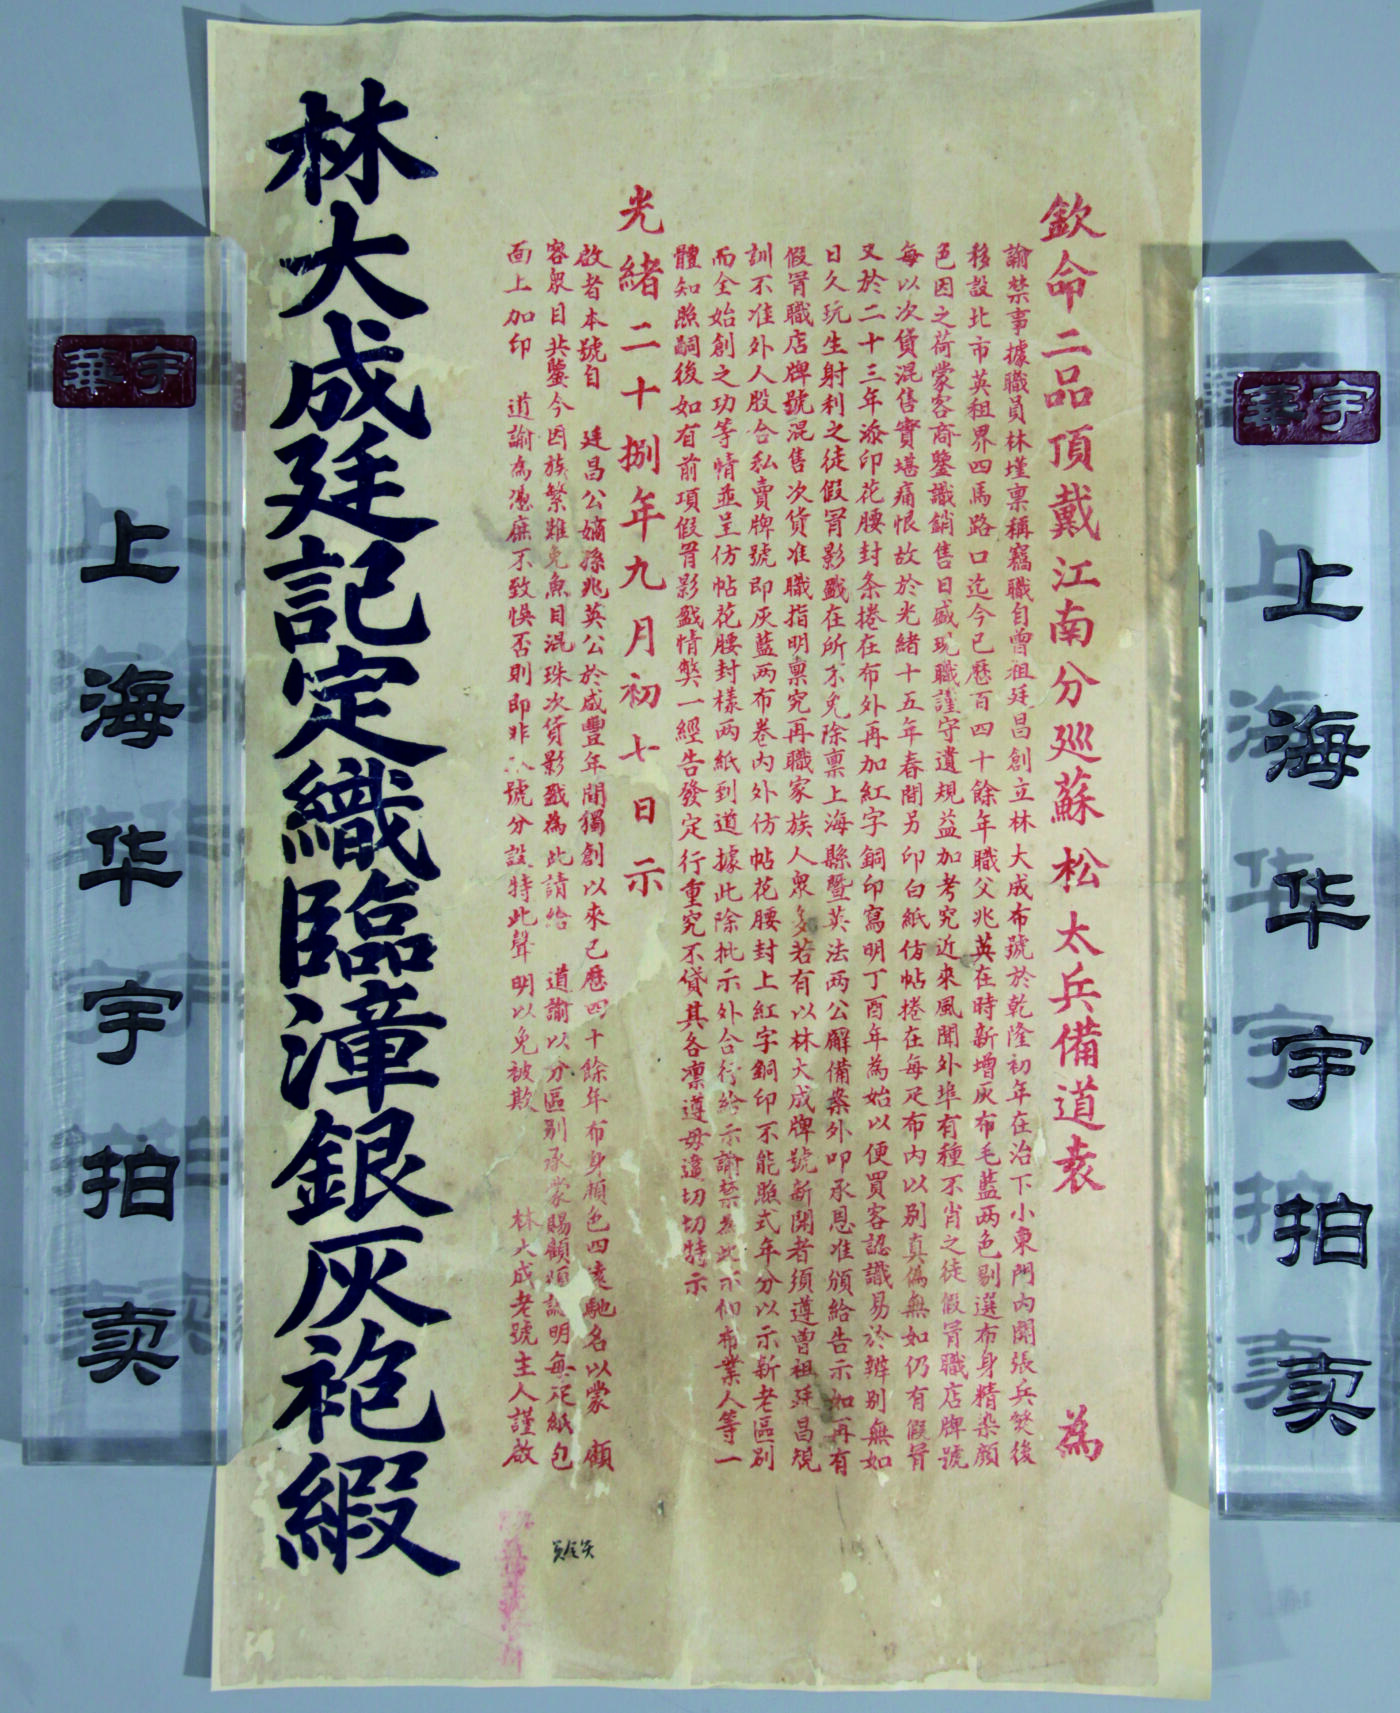 欽命二品頂戴江南分巡蘇松太兵備道袁 為
諭禁事據職員林瑾稟稱竊職自曾祖廷昌創立林大成布號於乾隆初年在治下小東門內開張兵燹後
移設北市英租界四馬路口迄今已歷百四十餘年職父兆英在時新增灰布毛藍两色剔選布身精染顏
色因之荷蒙客商鑒識銷售日盛現職謹守遺規益加考究近來風聞外埠有種不肖之徒假冒職店牌號
每以次貨混售實堪痛恨故於光緒十五年春間另印白紙仿帖捲在每疋布內以別真偽無如仍有假冒
又於二十三年添印花腰封条捲在布外再加紅字銅印寫明丁酉年為始以便買客認識易於辨別無如
日久玩生射利之徒假冒影戤在所不免除稟上海縣暨英法两公廨備案外叩承恩准頒給告示如再有
假冒職店牌號混售次貨准職指明稟究再職家族人眾多若有以林大成牌號新開者須遵曾祖廷昌規
訓不准外人股合私賣牌號即灰藍两布卷內外仿帖花腰封上紅字銅印不能照式年分以示新老區別
而全始創之功等情並呈仿帖花腰封樣两紙到道據此除批示外合行給示諭禁為此示仰布業人等一
體知照嗣後如有前項假冒影戤情獘一經告發定行重究不貸其各凛遵毋違切切特示
光緒二十捌年九月初七日示
啟者本號自 廷昌公嫡孫兆英公於咸豐年間獨創以來已歷四十餘年布身顏色四遠馳名以蒙 顧
容眾目共鑒今因族繁難免魚目混珠次貨影戤為此請給 道諭以分區別承蒙賜顧須認明每疋紙包
面上加印 道諭為憑庶不致悞否則即非號分設特此聲明以免被欺 林大成老號主人謹啟
林大成廷記定織臨漳銀灰袍緞
華宇
上海华宇拍卖
華宇
上海华宇拍卖